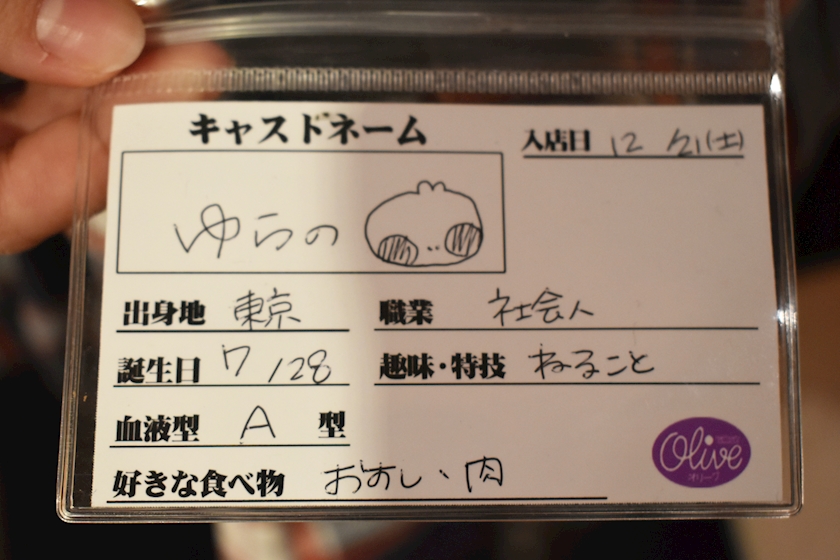 キャストネーム
ゆらの
入店日 12/21(土)
出身地 東京
職業 社会人
誕生日 7/28
趣味・特技 ねること
血液型 A 型
好きな食べ物 おすし、肉
Olive
オリーブ